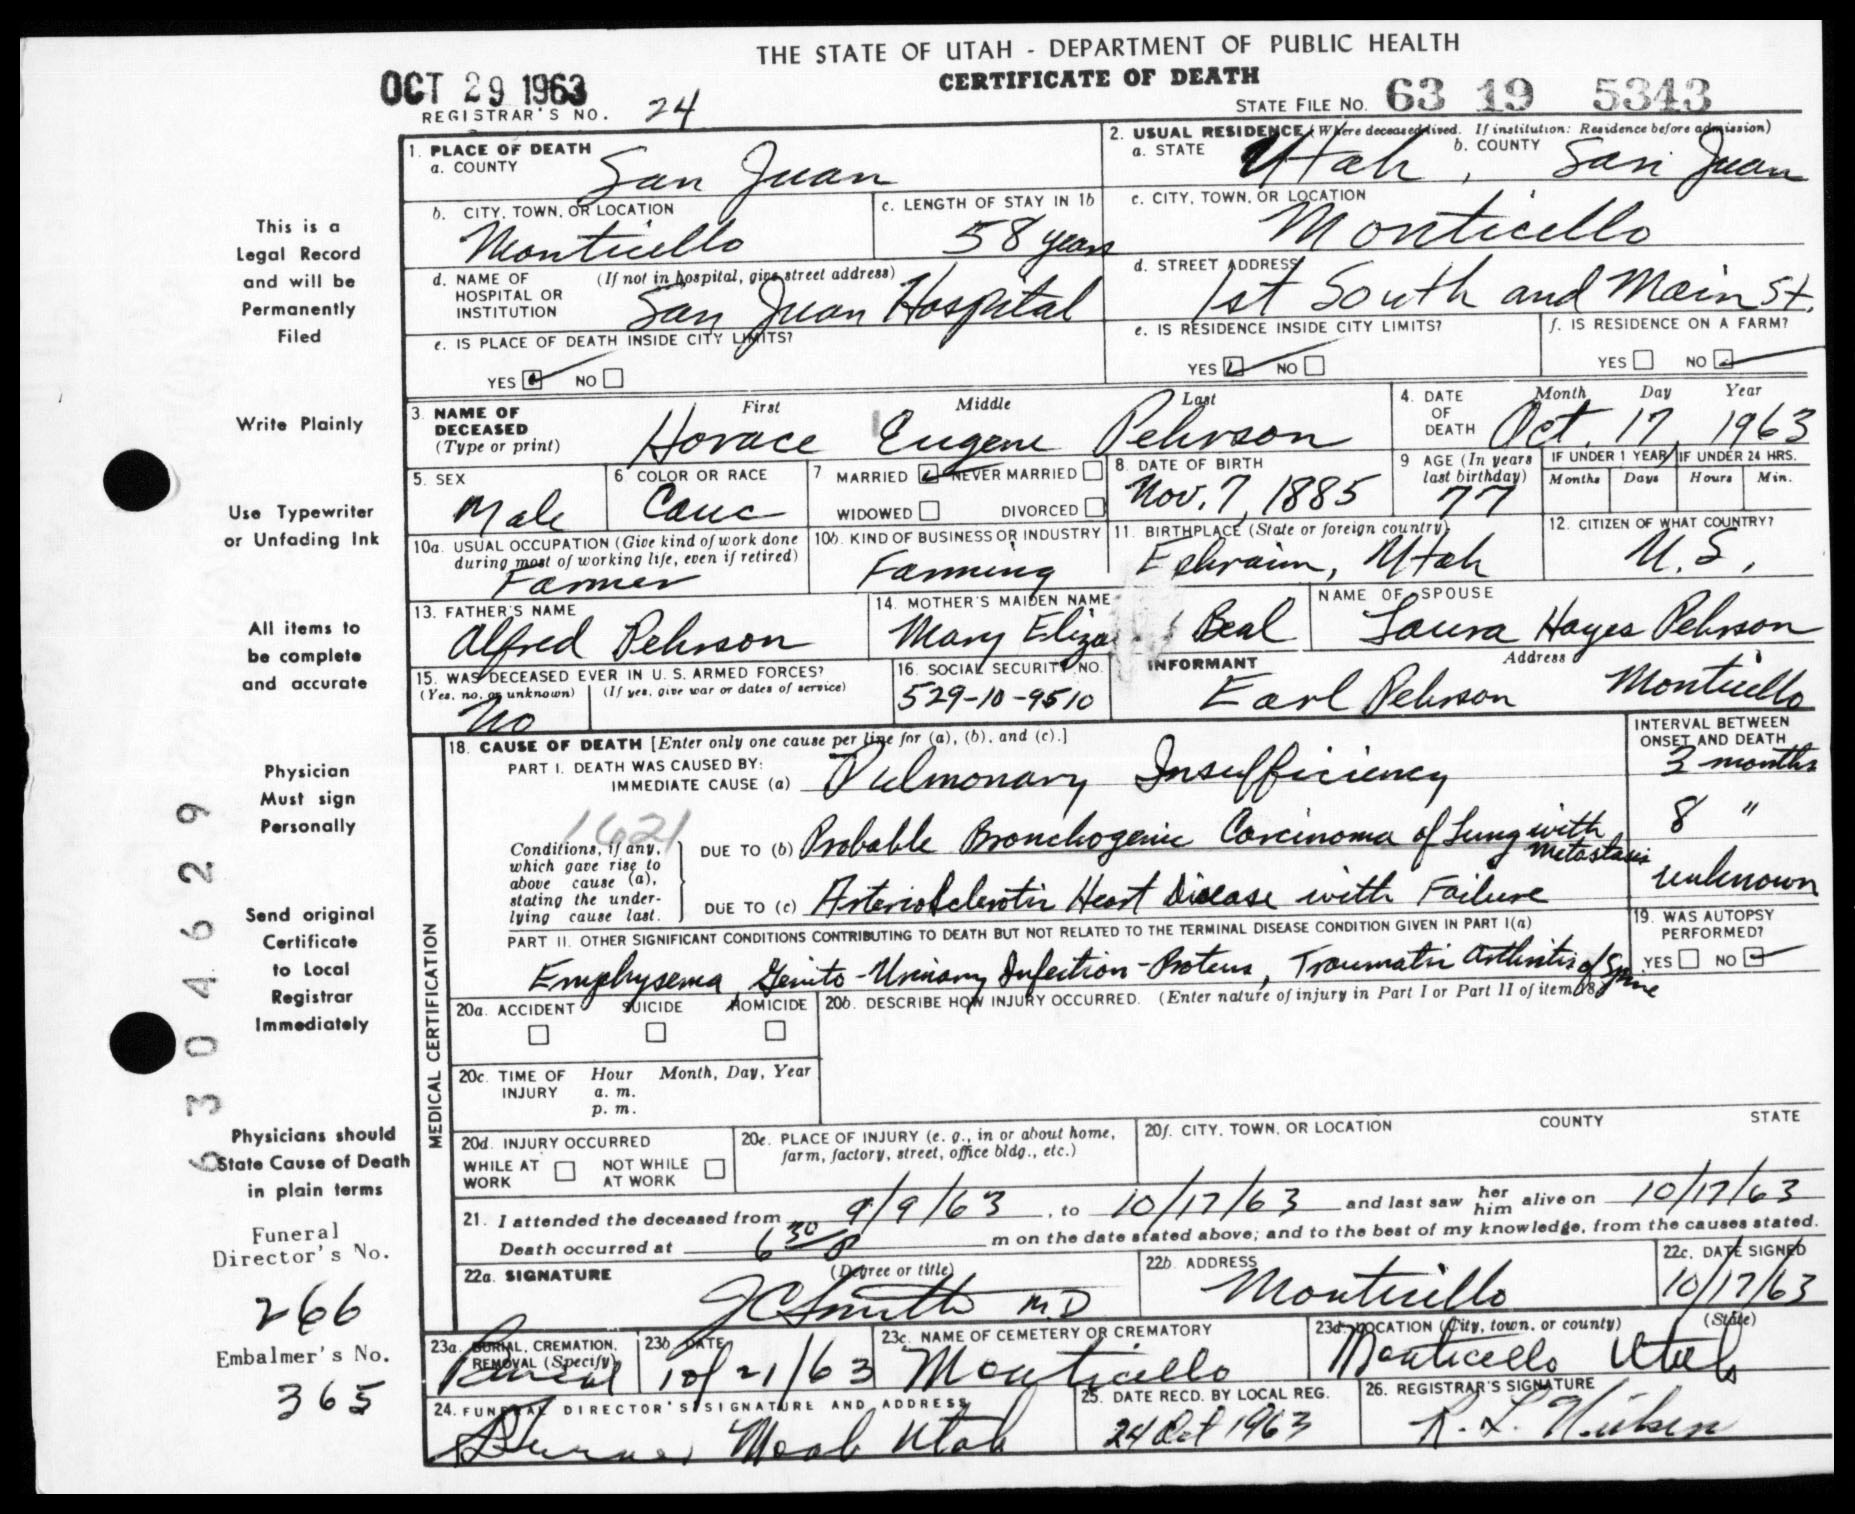 THE STATE OF UTAH - DEPARTMENT OF PUBLIC HEALTH
CERTIFICATE OF DEATH
OCT 29 1963
REGISTRAR'S NO. 24
STATE FILE NO. 63 19 5343
1. PLACE OF DEATH
a. COUNTY San Juan
2. USUAL RESIDENCE (Where deceased lived. If institution: Residence before admission)
a. STATE Utah, b. COUNTY San Juan
b. CITY, TOWN, OR LOCATION Monticello
c. LENGTH OF STAY IN 1b 58 years
c. CITY, TOWN, OR LOCATION Monticello
d. NAME OF HOSPITAL OR INSTITUTION (If not in hospital, give street address) San Juan Hospital
d. STREET ADDRESS 1st South and Main St.
e. IS PLACE OF DEATH INSIDE CITY LIMITS?
YES NO
e. IS RESIDENCE INSIDE CITY LIMITS?
YES NO
f. IS RESIDENCE ON A FARM?
YES NO
3. NAME OF DECEASED (Type or print)
First Middle Last
Horace Eugene Pehrson
4. DATE OF DEATH Month Day Year
Oct. 17, 1963
5. SEX Male
6. COLOR OR RACE Cauc
7 MARRIED NEVER MARRIED
WIDOWED DIVORCED
8. DATE OF BIRTH Nov. 7, 1885
9 AGE (In years last birthday) 77
IF UNDER 1 YEAR Months Days
IF UNDER 24 HRS. Hours Min.
10a. USUAL OCCUPATION (Give kind of work done during most of working life, even if retired) Farmer
10b. KIND OF BUSINESS OR INDUSTRY Farming
11. BIRTHPLACE (State or foreign country) Ephraim, Utah
12. CITIZEN OF WHAT COUNTRY? U.S.
13. FATHER'S NAME Alfred Pehrson
14. MOTHER'S MAIDEN NAME Mary Eliza Beal
NAME OF SPOUSE Laura Hayes Pehrson
15. WAS DECEASED EVER IN U. S. ARMED FORCES?
(Yes, no, or unknown) (If yes, give war or dates of service)
No
16. SOCIAL SECURITY NO. 529-10-9510
INFORMANT Address
Earl Pehrson Monticello
MEDICAL CERTIFICATION
18. CAUSE OF DEATH [Enter only one cause per line for (a), (b), and (c).]
INTERVAL BETWEEN ONSET AND DEATH
PART I. DEATH WAS CAUSED BY:
IMMEDIATE CAUSE (a) Pulmonary Insufficiency 3 months
1621
Conditions, if any, which gave rise to above cause (a), stating the underlying cause last.
DUE TO (b) Probable Bronchogenic Carcinoma of Lung with Metastasis 8 "
DUE TO (c) Arteriosclerotic Heart Disease with Failure unknown
PART II. OTHER SIGNIFICANT CONDITIONS CONTRIBUTING TO DEATH BUT NOT RELATED TO THE TERMINAL DISEASE CONDITION GIVEN IN PART I(a)
Emphysema, Genito-Urinary Infection-Proteus, Traumatic Arthritis of Spine
19. WAS AUTOPSY PERFORMED?
YES NO
20a. ACCIDENT SUICIDE HOMICIDE
20b. DESCRIBE HOW INJURY OCCURRED. (Enter nature of injury in Part I or Part II of item 18.)
20c. TIME OF INJURY Hour Month, Day, Year
a. m.
p. m.
20d. INJURY OCCURRED
WHILE AT WORK NOT WHILE AT WORK
20e. PLACE OF INJURY (e. g., in or about home, farm, factory, street, office bldg., etc.)
20f. CITY, TOWN, OR LOCATION COUNTY STATE
21. I attended the deceased from 9/9/63, to 10/17/63 and last saw her him alive on 10/17/63
Death occurred at 6 30 p m on the date stated above; and to the best of my knowledge, from the causes stated.
22a. SIGNATURE (Degree or title)
J C Smith M.D
22b. ADDRESS Monticello
22c. DATE SIGNED 10/17/63
23a. BURIAL, CREMATION, REMOVAL (Specify) Burial
23b DATE 10/21/63
23c. NAME OF CEMETERY OR CREMATORY Monticello
23d. LOCATION (City, town, or county) (State)
Monticello Utah
24. FUNERAL DIRECTOR'S SIGNATURE AND ADDRESS
Moab Utah
25. DATE RECD. BY LOCAL REG. 24 Oct 1963
26. REGISTRAR'S SIGNATURE
R. L.
This is a
Legal Record
and will be
Permanently
Filed
Write Plainly
Use Typewriter
or Unfading Ink
All items to
be complete
and accurate
Physician
Must sign
Personally
Send original
Certificate
to Local
Registrar
Immediately
Physicians should
State Cause of Death
in plain terms
Funeral
Director's No.
266
Embalmer's No.
365
6304629